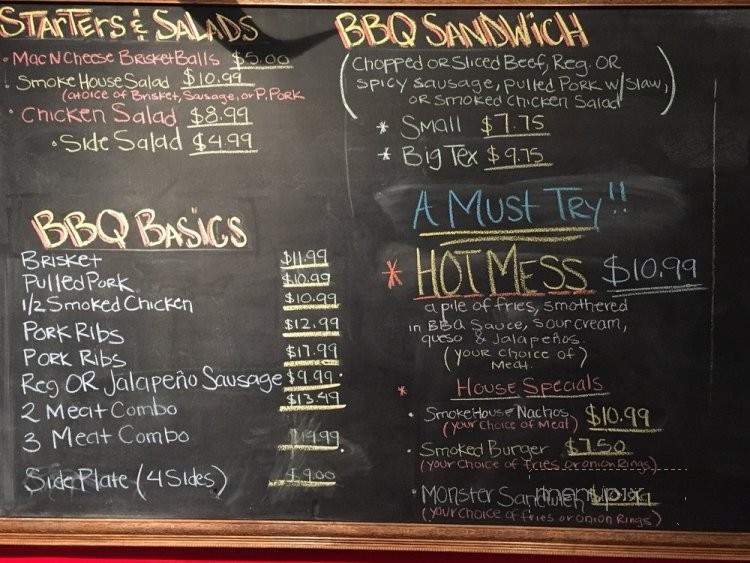 STARTERS & SALADS
• Mac N Cheese Brisket Balls $5.00
• Smoke House Salad $10.99
(choice of Brisket, Sausage, or P. Pork
• Chicken Salad $8.99
• Side Salad $4.99
BBQ BASICS
Brisket $11.99
Pulled Pork $10.99
1/2 Smoked Chicken $10.99
Pork Ribs $12.99
Pork Ribs $17.99
Reg OR Jalapeño Sausage $9.99
2 Meat Combo $13.49
3 Meat Combo
Side Plate (4 Sides) $9.00
BBQ SANDWICH
(Chopped OR Sliced Beef, Reg. OR
spicy sausage, pulled Pork w/slaw,
OR smoked chicken Salad)
* Small $7.75
* Big Tex $9.75
A MUST TRY!!
* HOT MESS $10.99
a pile of fries, smothered
in BBQ Sauce, sour cream,
queso & Jalapeños.
(your choice of)
Meat.
* House Specials
• SmokeHouse Nachos $10.99
(your choice of Meat)
• Smoked Burger $7.50
(your choice of fries or onion Rings)
• Monster Sandwich
(your choice of fries or onion Rings)